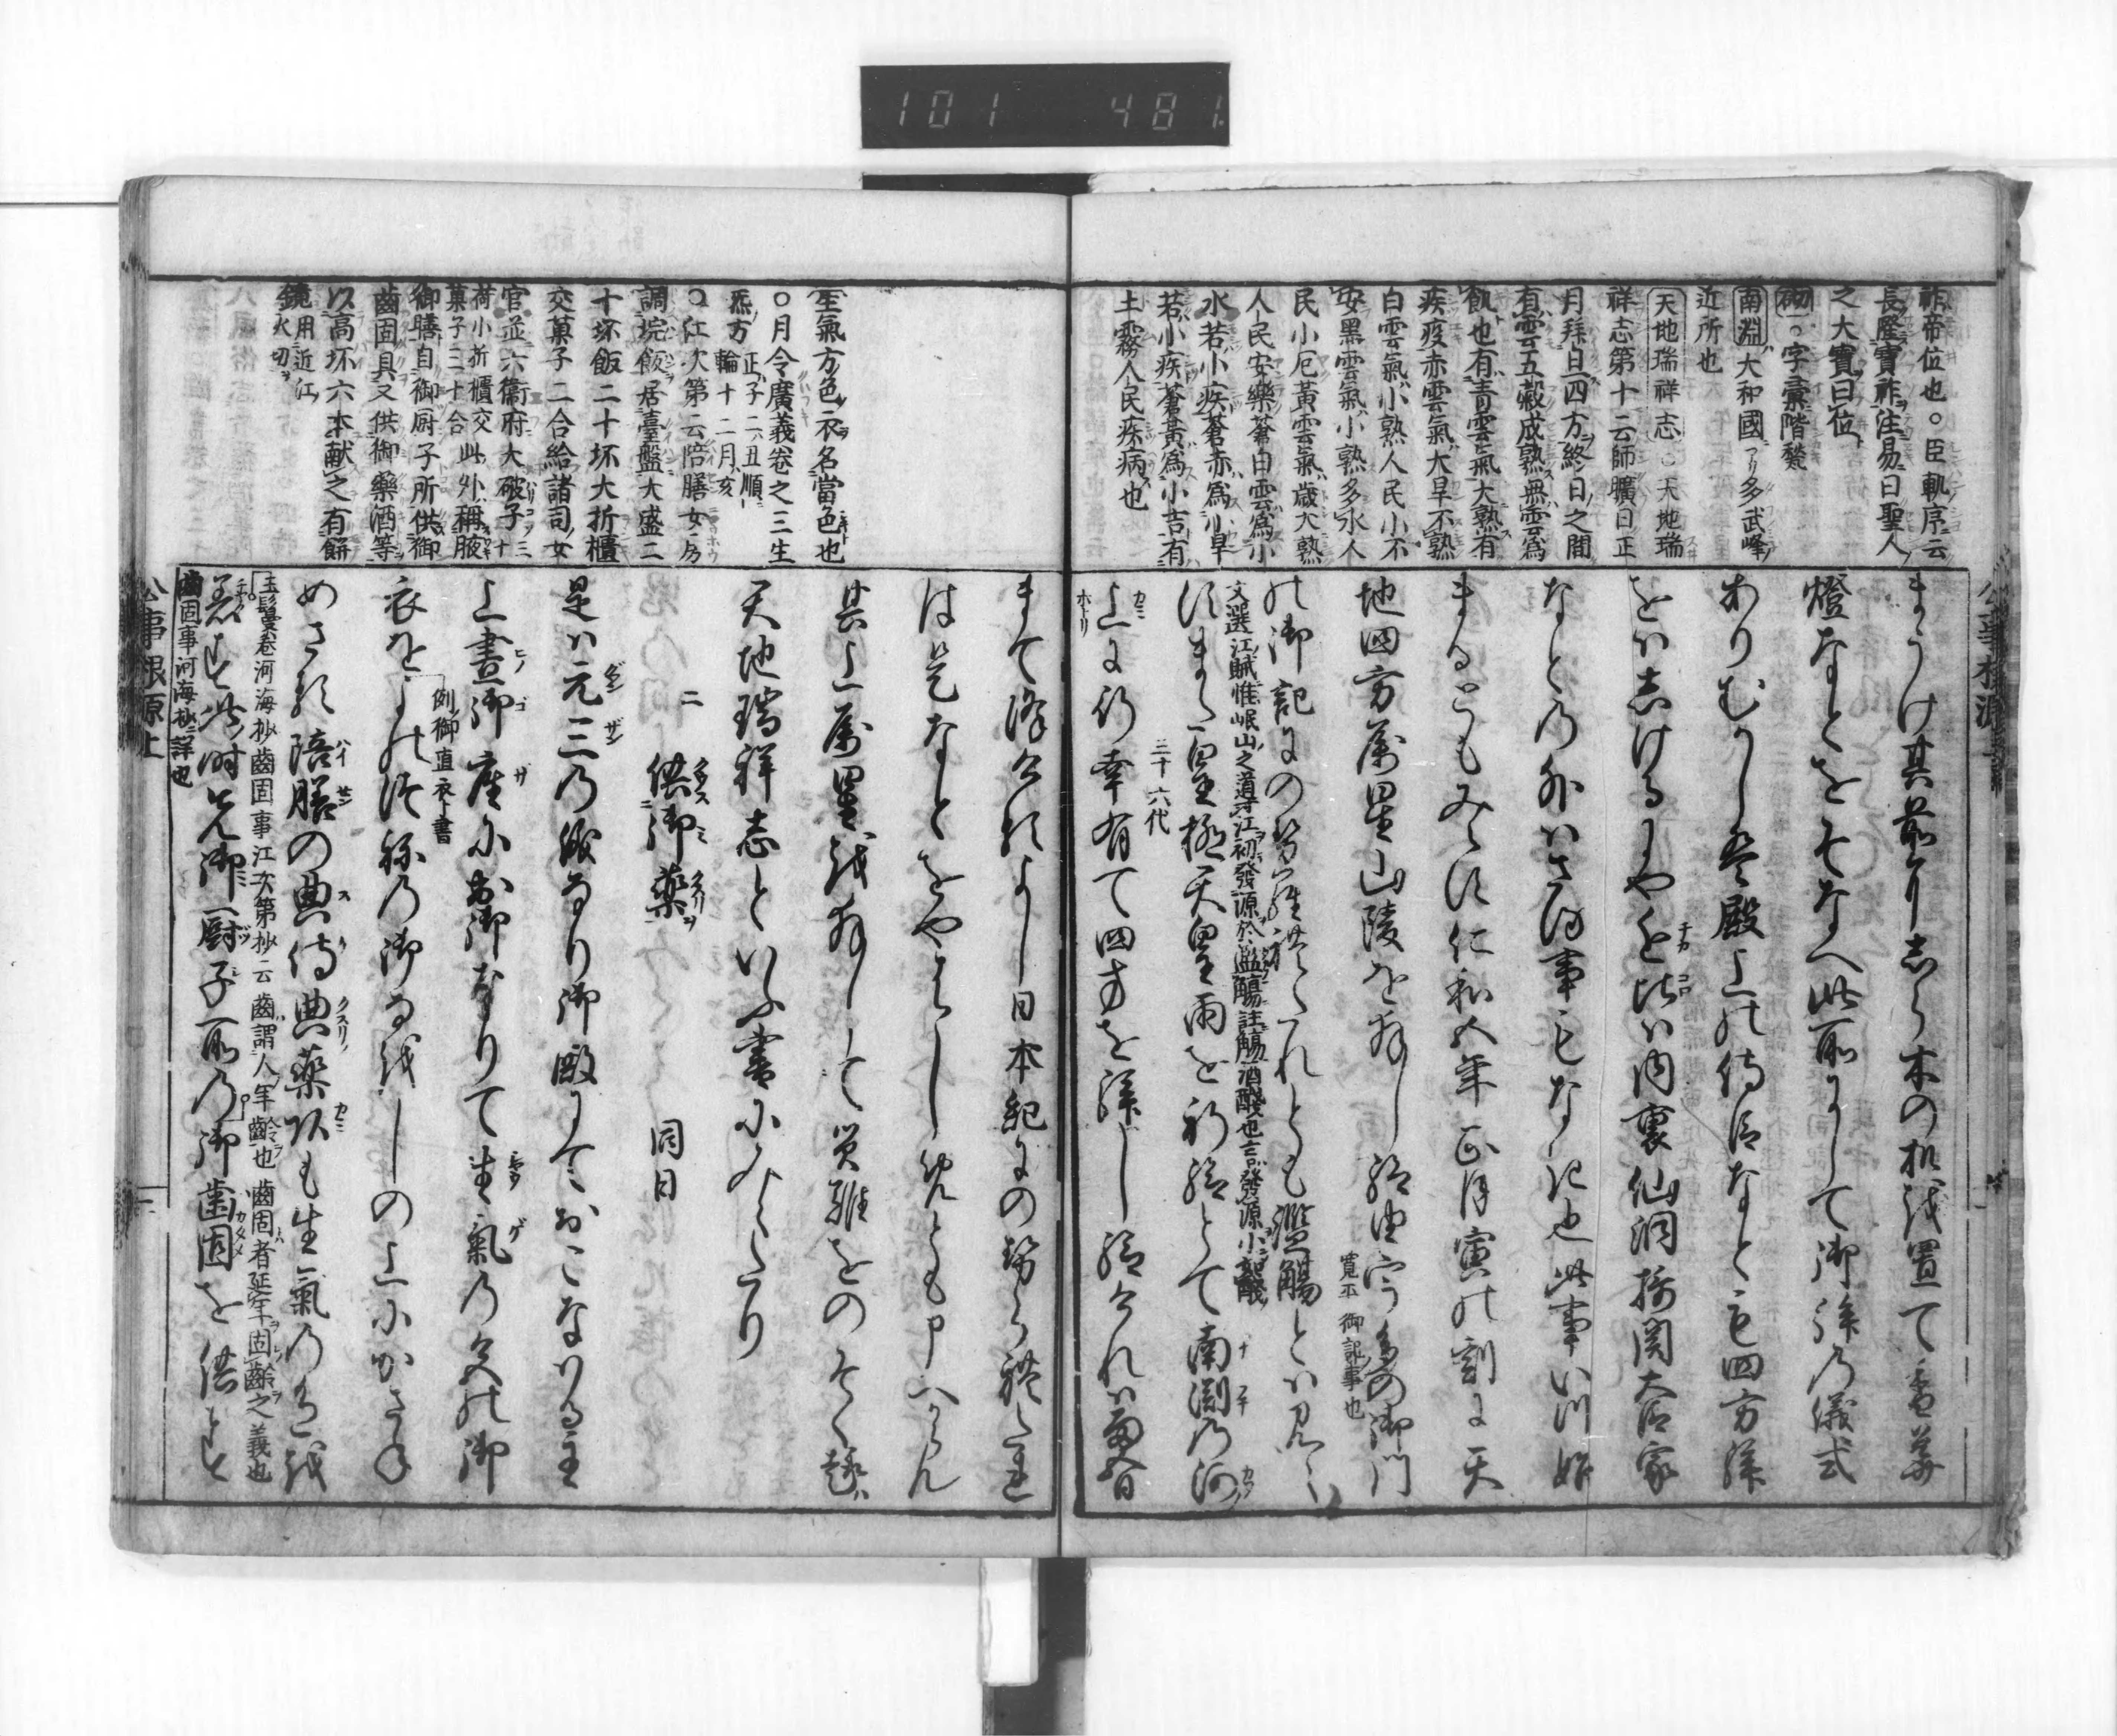 101 481.
祚帝位也。臣軌序云
長隆寶祚注易曰聖人
之大寶曰位
砌。字彙階甃
南淵大和國ニアリ多武峰ノ
近所也
天地瑞祥志。天地瑞
祥志第十二云師曠曰正
月拜日四方終日之間
有雲五穀成熟無雲爲
飢也有青雲氣大熟有
疾疫赤雲氣大旱不熟
白雲氣小熟人民小不
安黑雲氣小熟多水人
民小厄黃雲氣歲大熟
人民安樂蒼白雲爲小
水若小疾蒼赤爲小旱
若小疾蒼黃爲小吉有
土霧人民疾病也
まうけ其前にしら木の机を置て香華
燈なとをそなへ此所にして御拜の儀式
ありむかしは殿上の侍臣なとも四方拜
をはしけるにや近比は內裏仙洞攝關大臣家
なとの外はさる事もなき也此事いつ始
まるともみえす仁和五年正月寅の刻に天
地四方屬星山陵を拜し給由宇多の御門
寬平御記事也
の御記にのせられたれとも濫觴とは見え
文選江賦惟岷山之導江初發源於濫觴註觴酒醆也言發源小如醆
すまた皇極天皇雨を祈給とて南淵の河
三十六代
上に行幸有て四方を拜し給けれは雨
公事根源上
生氣方色衣名當色也
○月令廣義卷之三生
炁方正子二丑順ニ
輪十二月亥
○江次第云陪膳女房
調垸飯居臺盤大盛二
十坏飯二十坏大折櫃
交菓子二合給諸司女
官並六衞府大破子三十
荷小折櫃交菓子三十合此外稱腋
御膳自御厨子所供御
齒固具又供御藥酒等
以高坏六本献之有餅
鏡用近江火切ヲ
まて降けるよし日本紀にのせられたれ
は是なとをやはしめとも申へからん
其上屬星を拜して災難をのそく趣
天地瑞祥志といふ書にみえたり
二 供御藥 同日
是は元三の儀なり御殿にておこなはる主
上晝御座に出御なりて生氣の色の御
衣をよのつねの御なをしの上にかさね
例ノ御直衣ト書
めさる陪膳の典侍典藥頭も生氣の色を
玉鬘卷河海抄齒固事江次第抄云齒謂人年齡也齒固者延年固齡之義也
着す此時先御厨子所の御歯固を供す
齒固事河海抄ニ詳也
公事根源上